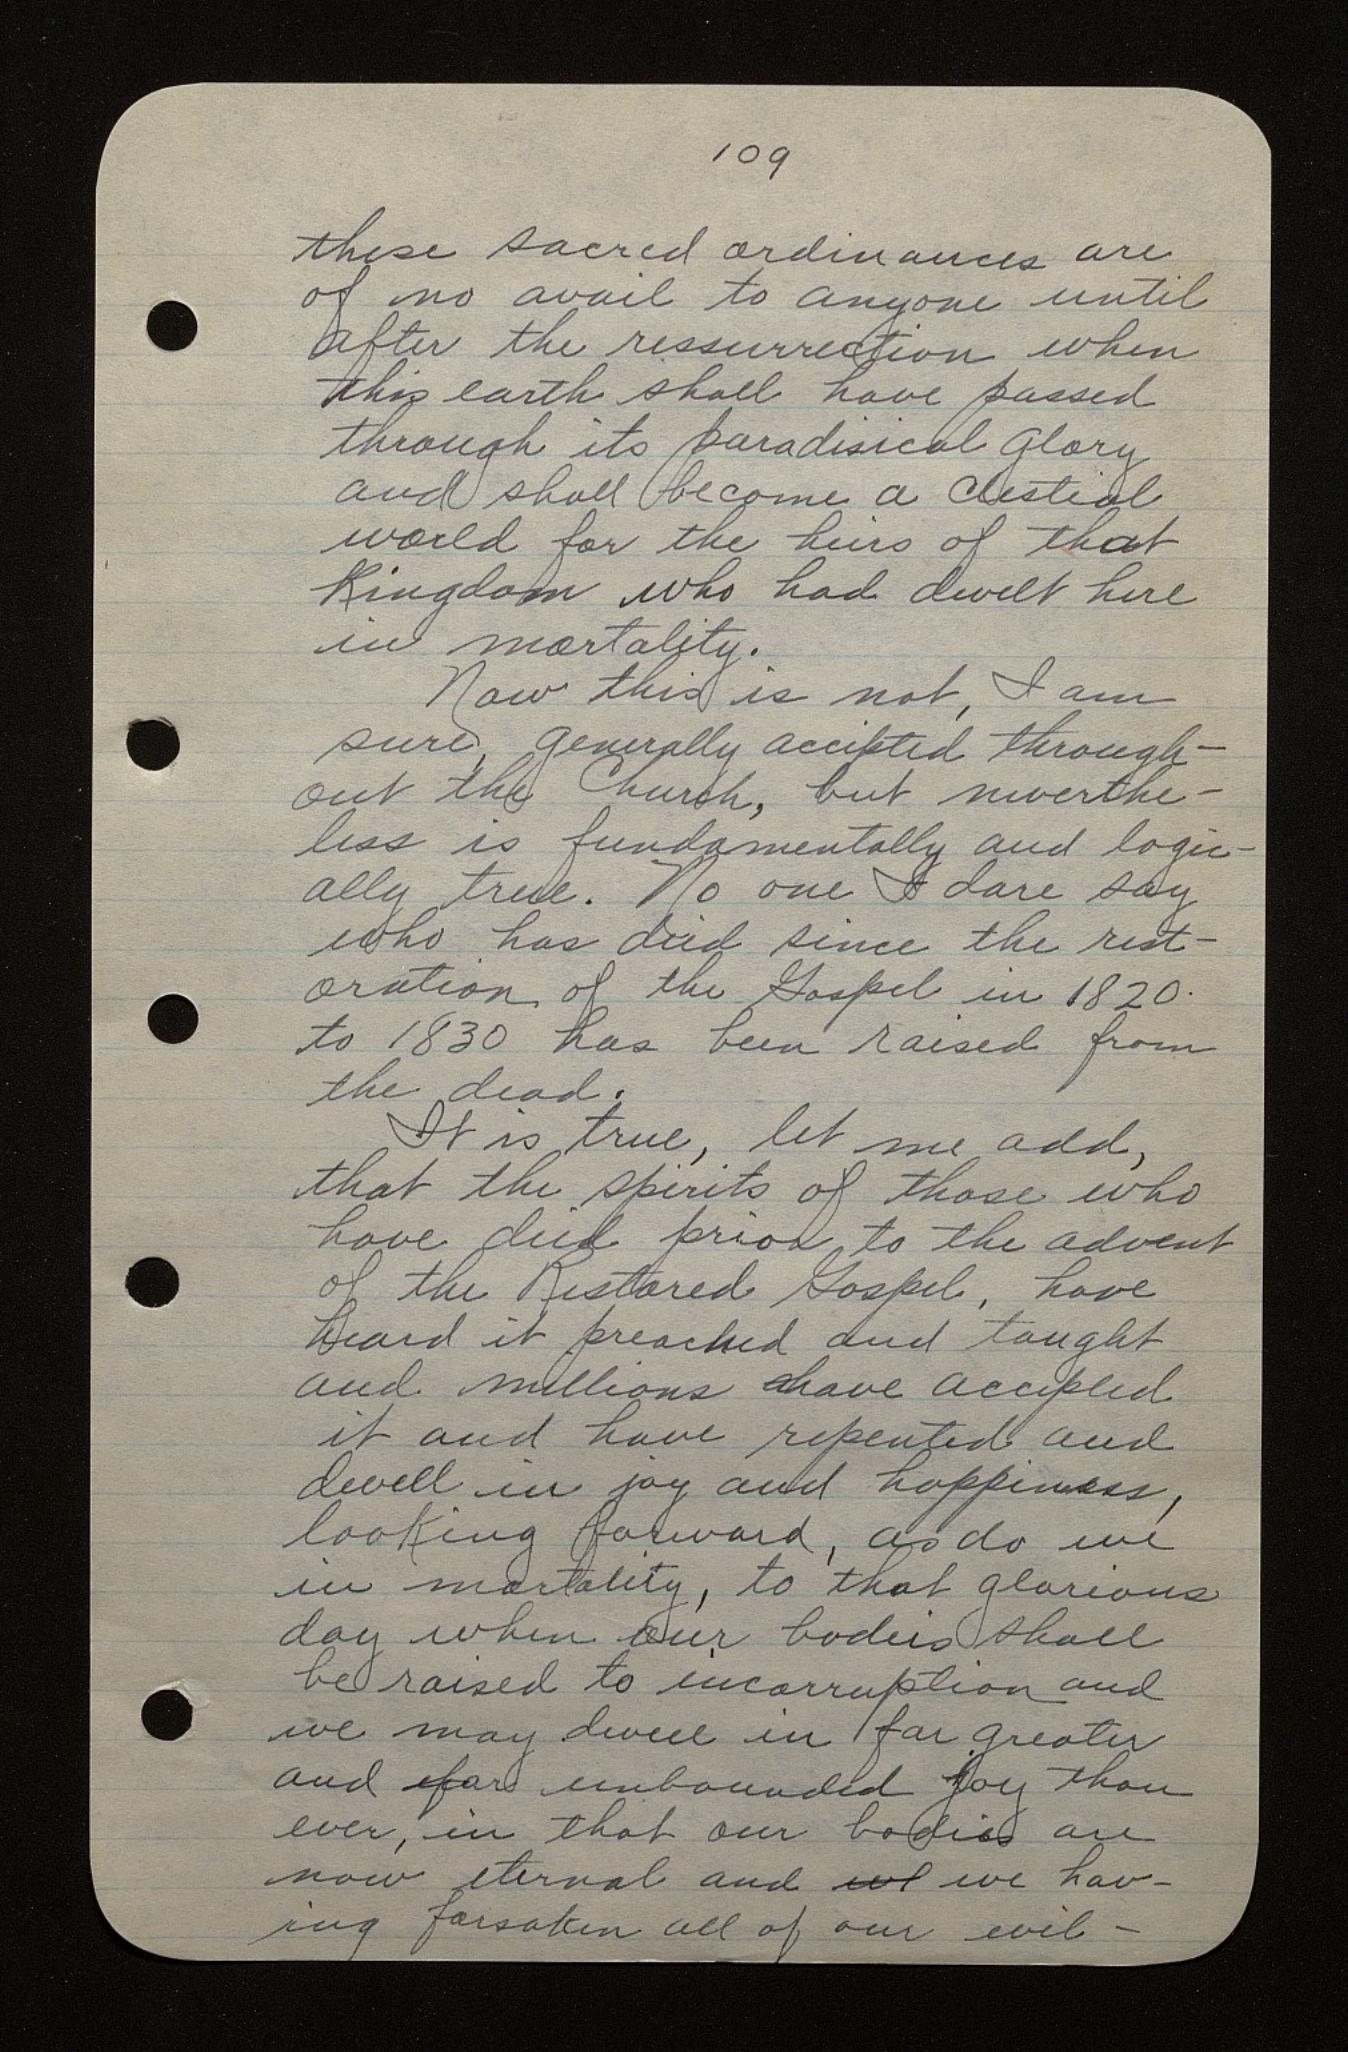 109
these sacred ordinances are
of no avail to anyone until
after the ressurrection when
this earth shall have passed
through its paradisical glory
and shall become a clestial
world for the heirs of that
Kingdom who had dwelt here
in mortality.
Now this is not, I am
sure, generally accepted through-
out the Church, but nverthe-
less is fundamentally and logic-
ally true. No one I dare say
who has died since the rest-
oration of the Gospel in 1820.
to 1830 has been raised from
the dead.
It is true, let me add,
that the spirits of those who
have died prior to the advent
of the Restored Gospel, have
heard it preached and taught
and millions have accepted
it and have repented and
dwell in joy and happiness,
looking forward, as do we
in mortality, to that glorious
day when our bodies shall
be raised to incorruption and
we may dwell in far greater
and far unbounded joy than
ever, in that our bodies are
now eternal and we we hav-
ing forsaken all of our evil-